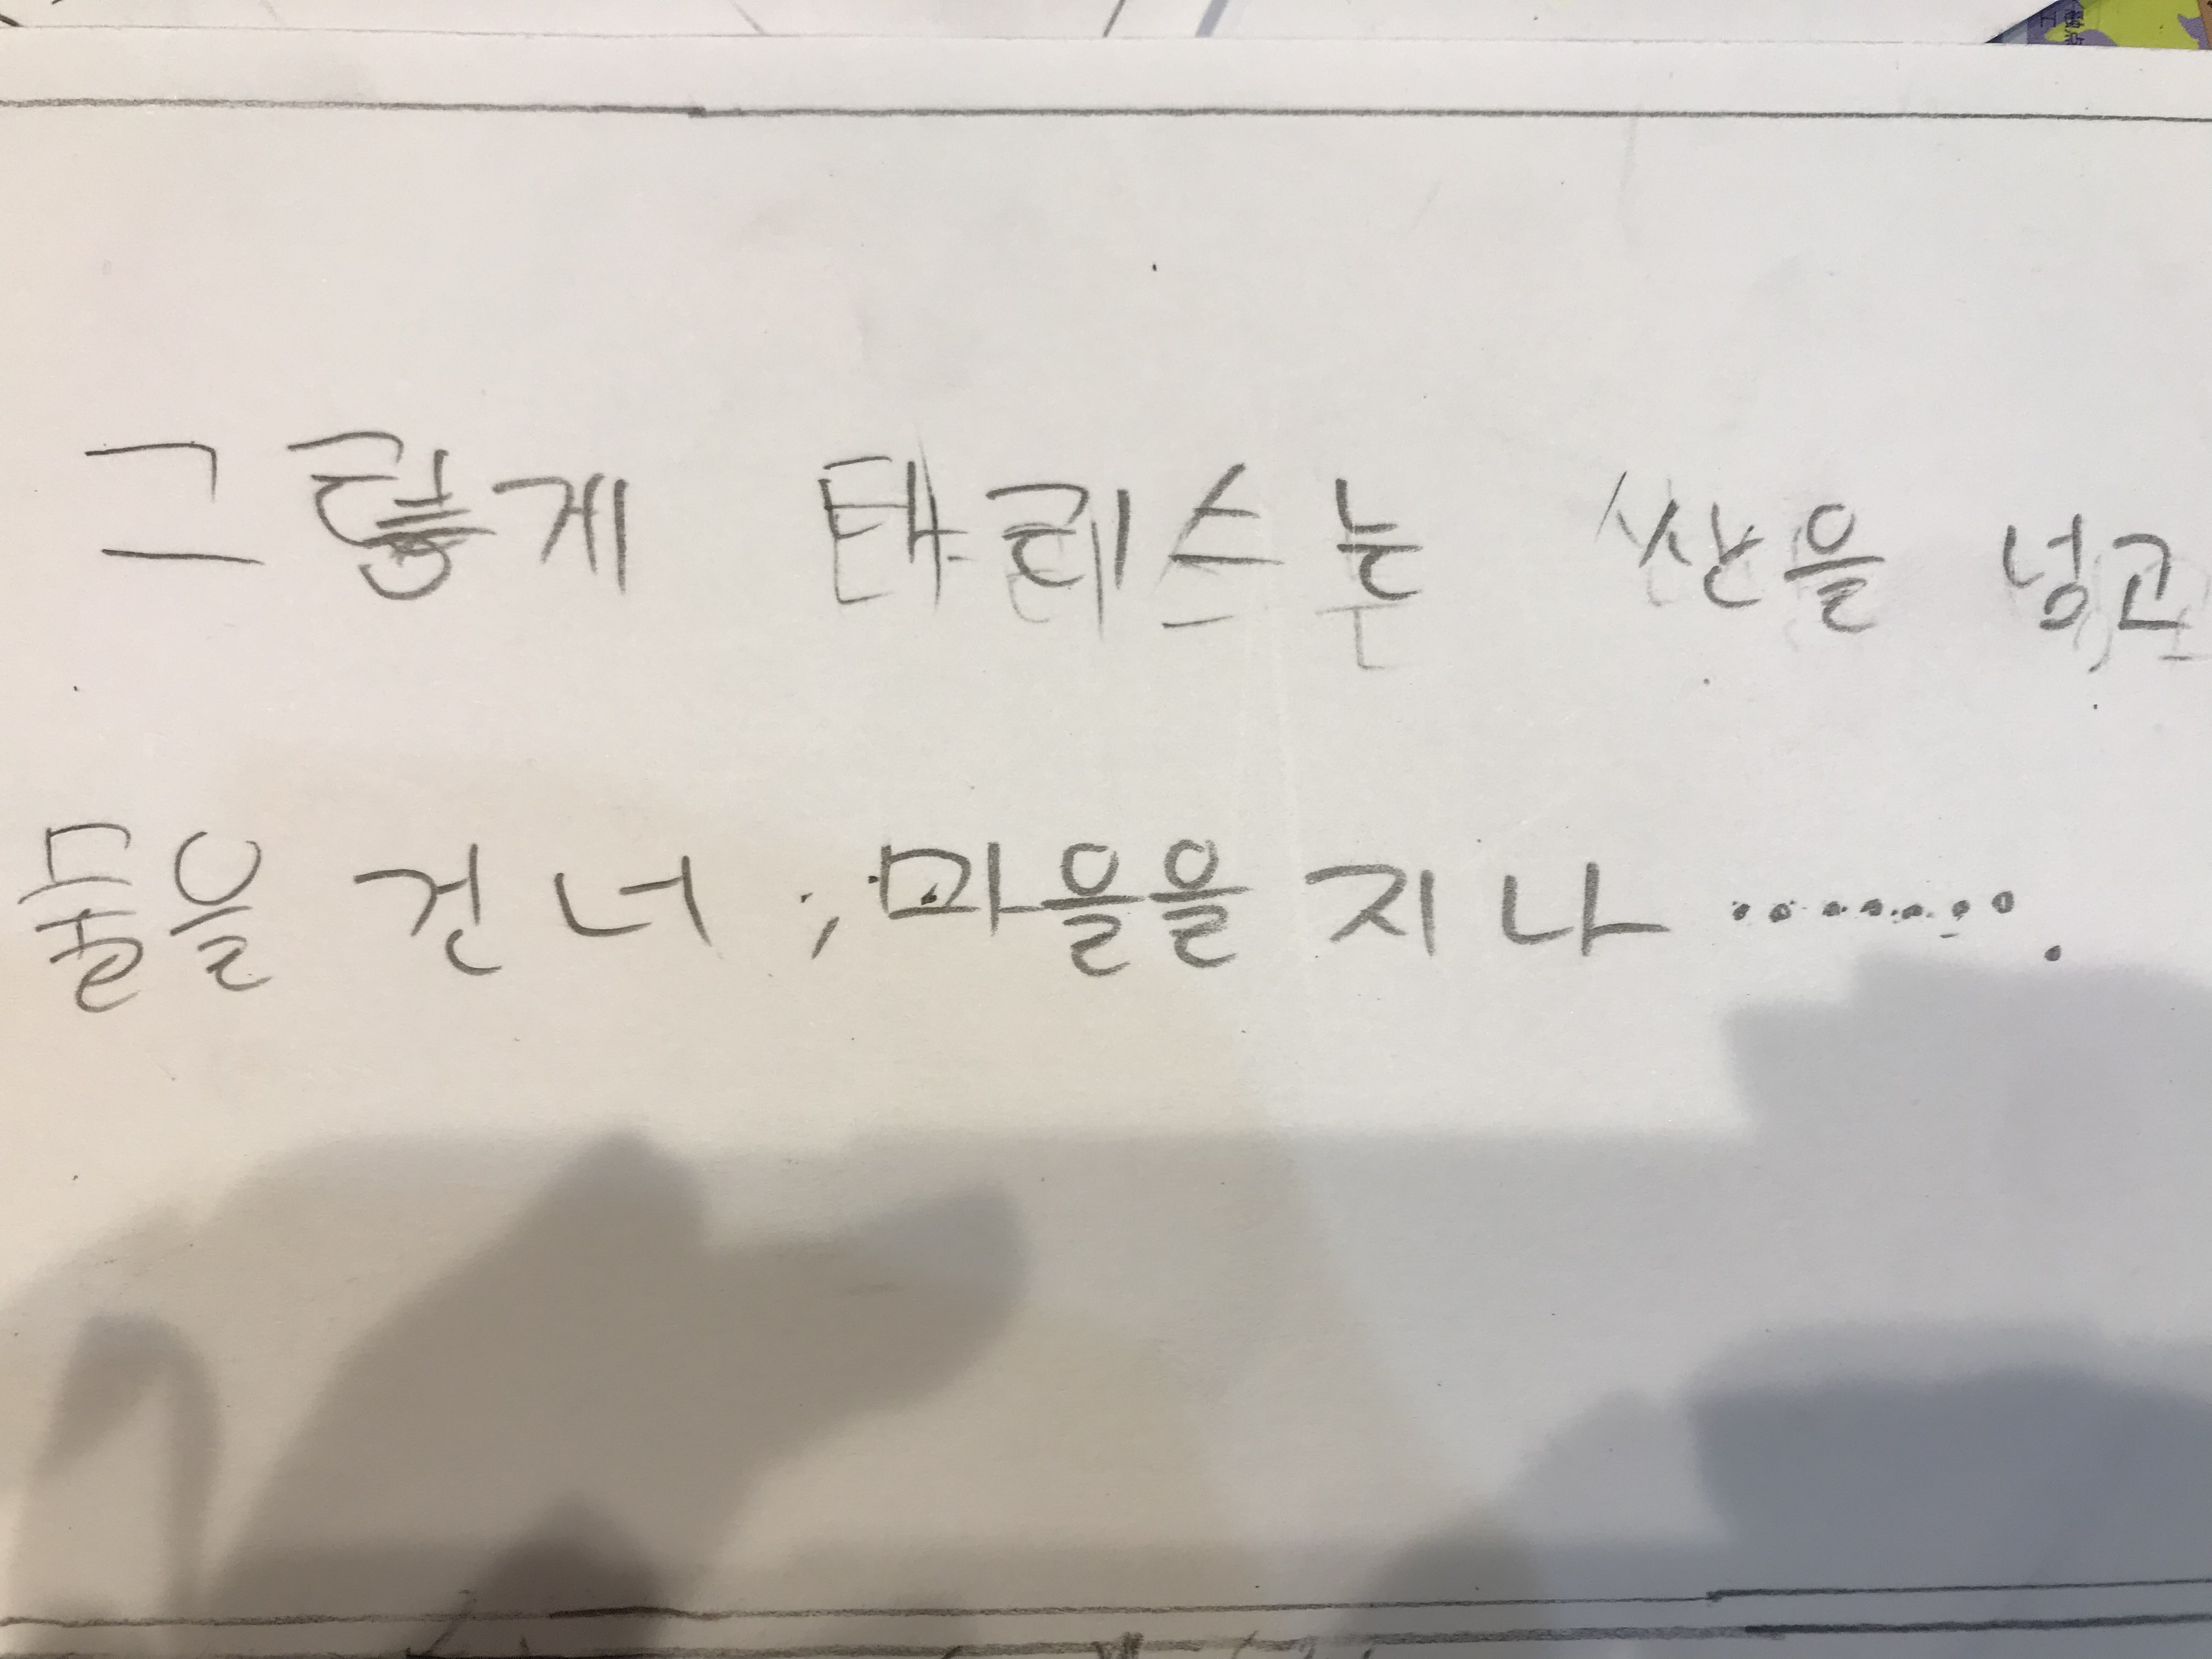 그렇게 태리스는 산을 넝고
물을 건너, 마을을 지나........